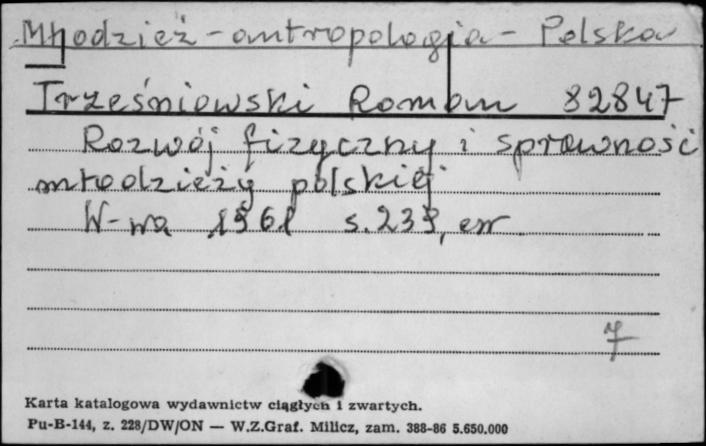 Młodzież - antropologia - Polska
Trześniowski Roman 82847
Rozwój fizyczny i sprawność
młodzieży polskiej
W-wa 1961 s. 239, err
7
Karta katalogowa wydawnictw ciągłych i zwartych.
Pu-B-144, z. 228/DW/ON — W.Z.Graf. Milicz, zam. 388-86 5.650.000